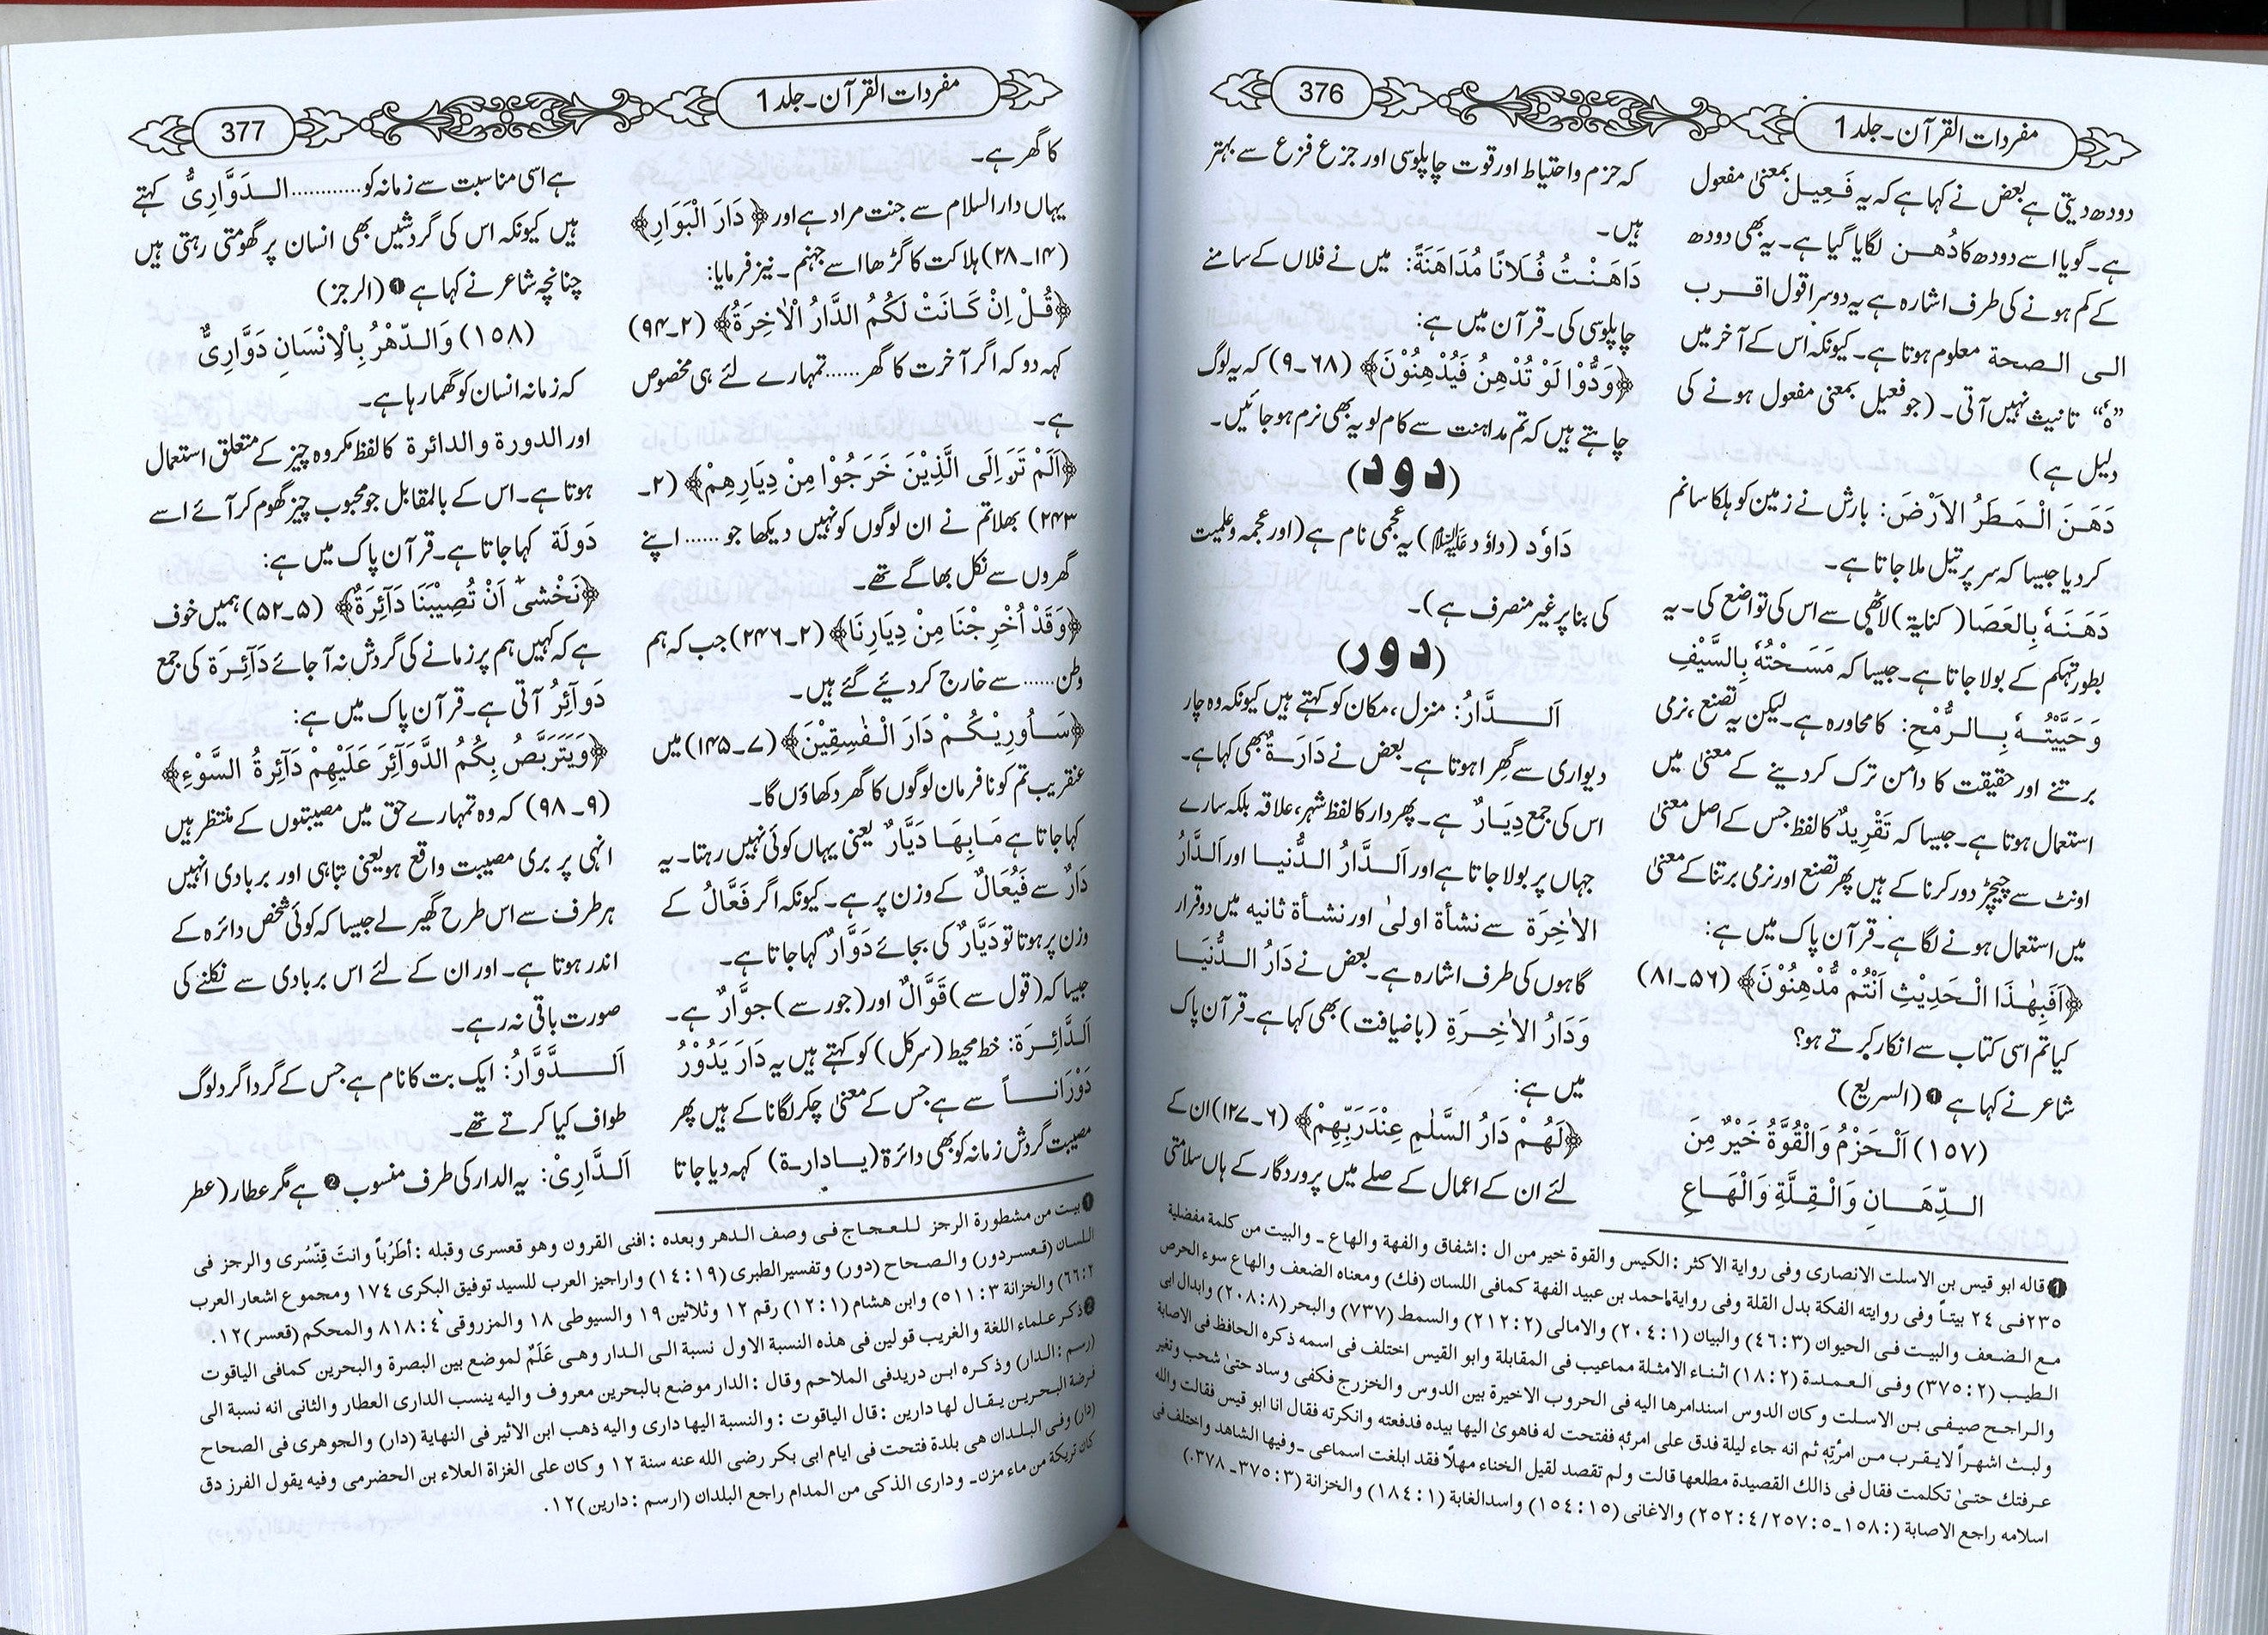 مفردات القرآن۔جلد 1
376
دودھ دیتی ہے بعض نے کہا ہے کہ یہ فَعِیل بمعنیٰ مفعول
ہے۔ گویا اسے دودھ کا دُھن لگایا گیا ہے۔ یہ بھی دودھ
کے کم ہونے کی طرف اشارہ ہے یہ دوسرا قول اقرب
الی الصحة معلوم ہوتا ہے۔ کیونکہ اس کے آخر میں
”ہ“ تانیث نہیں آتی۔ (جو فعیل بمعنی مفعول ہونے کی
دلیل ہے)
دَھَنَ الْمَطَرُ الاَرْضَ: بارش نے زمین کو ہلکا سا نم
کر دیا جیسا کہ سر پر تیل ملا جاتا ہے۔
دَھَنَہٗ بِالعَصَا (کنایۃ) لاٹھی سے اس کی تواضع کی۔ یہ
بطور تہکم کے بولا جاتا ہے۔ جیسا کہ مَسَحْتُہٗ بِالسَّیْفِ
وَحَیَّیْتُہٗ بِالرُّمْحِ: کا محاورہ ہے۔ لیکن یہ تصنع، نرمی
برتنے اور حقیقت کا دامن ترک کر دینے کے معنیٰ میں
استعمال ہوتا ہے۔ جیسا کہ تَقْرِیدٌ کا لفظ جس کے اصل معنیٰ
اونٹ سے چیچڑ دور کرنا کے ہیں پھر تصنع اور نرمی برتنا کے معنیٰ
میں استعمال ہونے لگا ہے۔ قرآن پاک میں ہے:
﴿اَفَبِھٰذَا الْحَدِیْثِ اَنْتُمْ مُّدْھِنُوْنَ﴾ (۵۶۔۸۱)
کیا تم اسی کتاب سے انکار کرتے ہو؟
شاعر نے کہا ہے ❶ (السریع)
(۱۵۷) اَلْحَزْمُ وَالْقُوَّةُ خَیْرٌ مِنَ
الدِّھَانِ وَالْقِلَّةِ وَالْھَاعِ
کہ حزم و احتیاط اور قوت چاپلوسی اور جزع فزع سے بہتر
ہیں۔
دَاھَنْتُ فُلَانًا مُدَاھَنَةً: میں نے فلاں کے سامنے
چاپلوسی کی۔ قرآن میں ہے:
﴿وَدُّوْا لَوْ تُدْھِنُ فَیُدْھِنُوْنَ﴾ (۶۸۔۹) کہ یہ لوگ
چاہتے ہیں کہ تم مداہنت سے کام لو یہ بھی نرم ہو جائیں۔
(دود)
دَاوٗد (داوٗد علیہ السلام) یہ عجمی نام ہے (اور عجمہ وعلمیت
کی بنا پر غیر منصرف ہے)۔
(دور)
اَلدَّارُ: منزل، مکان کو کہتے ہیں کیونکہ وہ چار
دیواری سے گھرا ہوتا ہے۔ بعض نے دَارَةٌ بھی کہا ہے۔
اس کی جمع دِیَارٌ ہے۔ پھر دار کا لفظ شہر، علاقہ بلکہ سارے
جہاں پر بولا جاتا ہے اور اَلدَّارُ الدُّنیا اور اَلدَّارُ
الاٰخِرَة سے نشأة اولیٰ اور نشأة ثانیہ میں دو قرار
گاہوں کی طرف اشارہ ہے۔ بعض نے دَارُ الدُّنیَا
وَدَارُ الاٰخِرَةِ (باضافت) بھی کہا ہے۔ قرآن پاک
میں ہے:
﴿لَھُمْ دَارُ السَّلٰمِ عِنْدَ رَبِّھِمْ﴾ (۶۔۱۲۷) ان کے
لئے ان کے اعمال کے صلے میں پروردگار کے ہاں سلامتی
❶ قاله ابو قيس بن الاسلت الانصارى وفى رواية الاكثر : الكيس والقوة خير من ال : اشفاق والفهة والهاع ۔ والبيت من كلمة مفضلية
٢٣٥فى ٢٤ بيتاً وفى روايته الفكة بدل القلة وفى رواية لاحمد بن عبيد الفهة كمافى اللسان (فك) ومعناه الضعف والهاع سوء الحرص
مع الضعف والبيت فى الحيوان (٣: ٤٦) والبيان (١: ٢٠٤) والامالى (٢: ٢١٢) والسمط (٧٣٧) والبحر (٨: ٢٠٨) وابدال ابى
الطيب (٢: ٣٧٥) وفى العمدة (٢: ١٨) اثناء الامثلة مماعيب فى المقابلة وابو القيس اختلف فى اسمه ذكره الحافظ فى الاصابة
والراجح صيفى بن الاسلت وكان الدوس اسندامرها اليه فى الحروب الاخيرة بين الدوس والخزرج فكفى وساد حتىٰ شحب وتغير
ولبث اشهراً لايقرب من امرٔتهٖ ثم انه جاء ليلة فدق على امرئهٖ ففتحت له فاهوىٰ اليها بيده فدفعته وانكرته فقال انا ابو قيس فقالت والله
عرفتك حتىٰ تكلمت فقال فى ذالك القصيدة مطلعها قالت ولم تقصد لقيل الخناء مهلاً فقد ابلغت اسماعى ۔ وفيها الشاهد واختلف فى
اسلامه راجع الاصابة (: ١٥٨۔ ٥: ٢٥٧/ ٤: ٢٥٢) والاغانى (١٥: ١٥٤) واسدالغابة (١: ١٨٤) والخزانة (٣: ٣٧٥۔ ٣٧٨.)
مفردات القرآن۔جلد 1
377
کا گھر ہے۔
یہاں دارالسلام سے جنت مراد ہے اور ﴿دَارَ الْبَوَارِ﴾
(۱۴۔۲۸) ہلاکت کا گڑھا اسے جہنم۔ نیز فرمایا:
﴿قُلْ اِنْ کَانَتْ لَکُمُ الدَّارُ الْاٰخِرَةُ﴾ (۲۔۹۴)
کہہ دو کہ اگر آخرت کا گھر......تمہارے لئے ہی مخصوص
ہے۔
﴿اَلَمْ تَرَ اِلَی الَّذِیْنَ خَرَجُوْا مِنْ دِیَارِھِمْ﴾ (۲۔
۲۴۳) بھلا تم نے ان لوگوں کو نہیں دیکھا جو...... اپنے
گھروں سے نکل بھاگے تھے۔
﴿وَقَدْ اُخْرِجْنَا مِنْ دِیَارِنَا﴾ (۲۔۲۴۶) جب کہ ہم
وطن...... سے خارج کر دیئے گئے ہیں۔
﴿سَاُورِیْکُمْ دَارَ الْفٰسِقِیْنَ﴾ (۷۔۱۴۵) میں
عنقریب تم کو نافرمان لوگوں کا گھر دکھاؤں گا۔
کہا جاتا ہے مَابِھَا دَیَّارٌ یعنی یہاں کوئی نہیں رہتا۔ یہ
دَارٌ سے فَیْعَالٌ کے وزن پر ہے۔ کیونکہ اگر فَعَّالُ کے
وزن پر ہوتا تو دَیَّارٌ کی بجائے دَوَّارٌ کہا جاتا ہے۔
جیسا کہ (قول سے) قَوَّالٌ اور (جور سے) جوَّارٌ ہے۔
اَلدَّائِرَة: خط محیط (سرکل) کو کہتے ہیں یہ دَارَ یَدُوْرُ
دَوْرَاناً سے ہے جس کے معنیٰ چکر لگانا کے ہیں پھر
مصیبت گردش زمانہ کو بھی دائرة (یادارة) کہہ دیا جاتا
ہے اسی مناسبت سے زمانہ کو............الدَوَّارِیُّ کہتے
ہیں کیونکہ اس کی گردشیں بھی انسان پر گھومتی رہتی ہیں
چنانچہ شاعر نے کہا ہے ❶ (الرجز)
(۱۵۸) وَالدّھْرُ بِالْاِنْسَانِ دَوَّارِیٌّ
کہ زمانہ انسان کو گھما رہا ہے۔
اور الدورة والدائرة کا لفظ مکروہ چیز کے متعلق استعمال
ہوتا ہے۔ اس کے بالمقابل جو محبوب چیز گھوم کر آئے اسے
دَولَة کہا جاتا ہے۔ قرآن پاک میں ہے:
﴿نَخْشیٰٓ اَنْ تُصِیْبَنَا دَآئِرَةٌ﴾ (۵۔۵۲) ہمیں خوف
ہے کہ کہیں ہم پر زمانے کی گردش نہ آ جائے دَآئِرَة کی جمع
دَوآئِرُ آتی ہے۔ قرآن پاک میں ہے:
﴿وَیَتَرَبَّصُ بِکُمُ الدَّوَآئِرَ عَلَیْھِمْ دَآئِرةُ السَّوْءِ﴾
(۹۔۹۸) کہ وہ تمہارے حق میں مصیبتوں کے منتظر ہیں
انہی پر بری مصیبت واقع ہو یعنی تباہی اور بربادی انہیں
ہر طرف سے اس طرح گھیر لے جیسا کہ کوئی شخص دائرہ کے
اندر ہوتا ہے۔ اور ان کے لئے اس بربادی سے نکلنے کی
صورت باقی نہ رہے۔
اَلدَّوَّارُ: ایک بت کا نام ہے جس کے گردا گرد لوگ
طواف کیا کرتے تھے۔
اَلدَّارِیْ: یہ الدار کی طرف منسوب ❷ ہے مگر عطار (عطر
❶ بيت من مشطورة الرجز للعجاج فى وصف الدهر وبعده : افنى القرون وهو قعسرى وقبله : أطَرُباً وانتَ قِنّسُرى والرجز فى
اللسان (قعسردور) والصحاح (دور) وتفسير الطبرى (١٩: ١٤) واراجيز العرب للسيد توفيق البكرى ١٧٤ ومجموع اشعار العرب
٢: ٦٦) والخزانة ٣: ٥١١) وابن هشام (١: ١٢) رقم ١٢ وثلاثين ١٩ والسيوطى ١٨ والمزروقى ٤: ٨١٨ والمحكم (قعسر) ١٢.
❷ ذكر علماء اللغة والغريب قولين فى هذه النسبة الاول نسبة الى الدار وهى عَلَمٌ لموضع بين البصرة والبحرين كمافى الياقوت
(رسم : الدار) وذكره ابن دريدفى الملاحم وقال : الدار موضع بالبحرين معروف واليه ينسب الدارى العطار والثانى انه نسبة الى
فرضة البحرين يقال لها دارين : قال الياقوت : والنسبة اليها دارى واليه ذهب ابن الاثير فى النهاية (دار) والجوهرى فى الصحاح
(دار) وفى البلدان هى بلدة فتحت فى ايام ابى بكر رضى الله عنه سنة ١٢ وكان على الغزاة العلاء بن الحضرمى وفيه يقول الفرز دق
كان تريكة من ماء مزن۔ ودارى الذكى من المدام راجع البلدان (ارسم : دارين) ١٢.